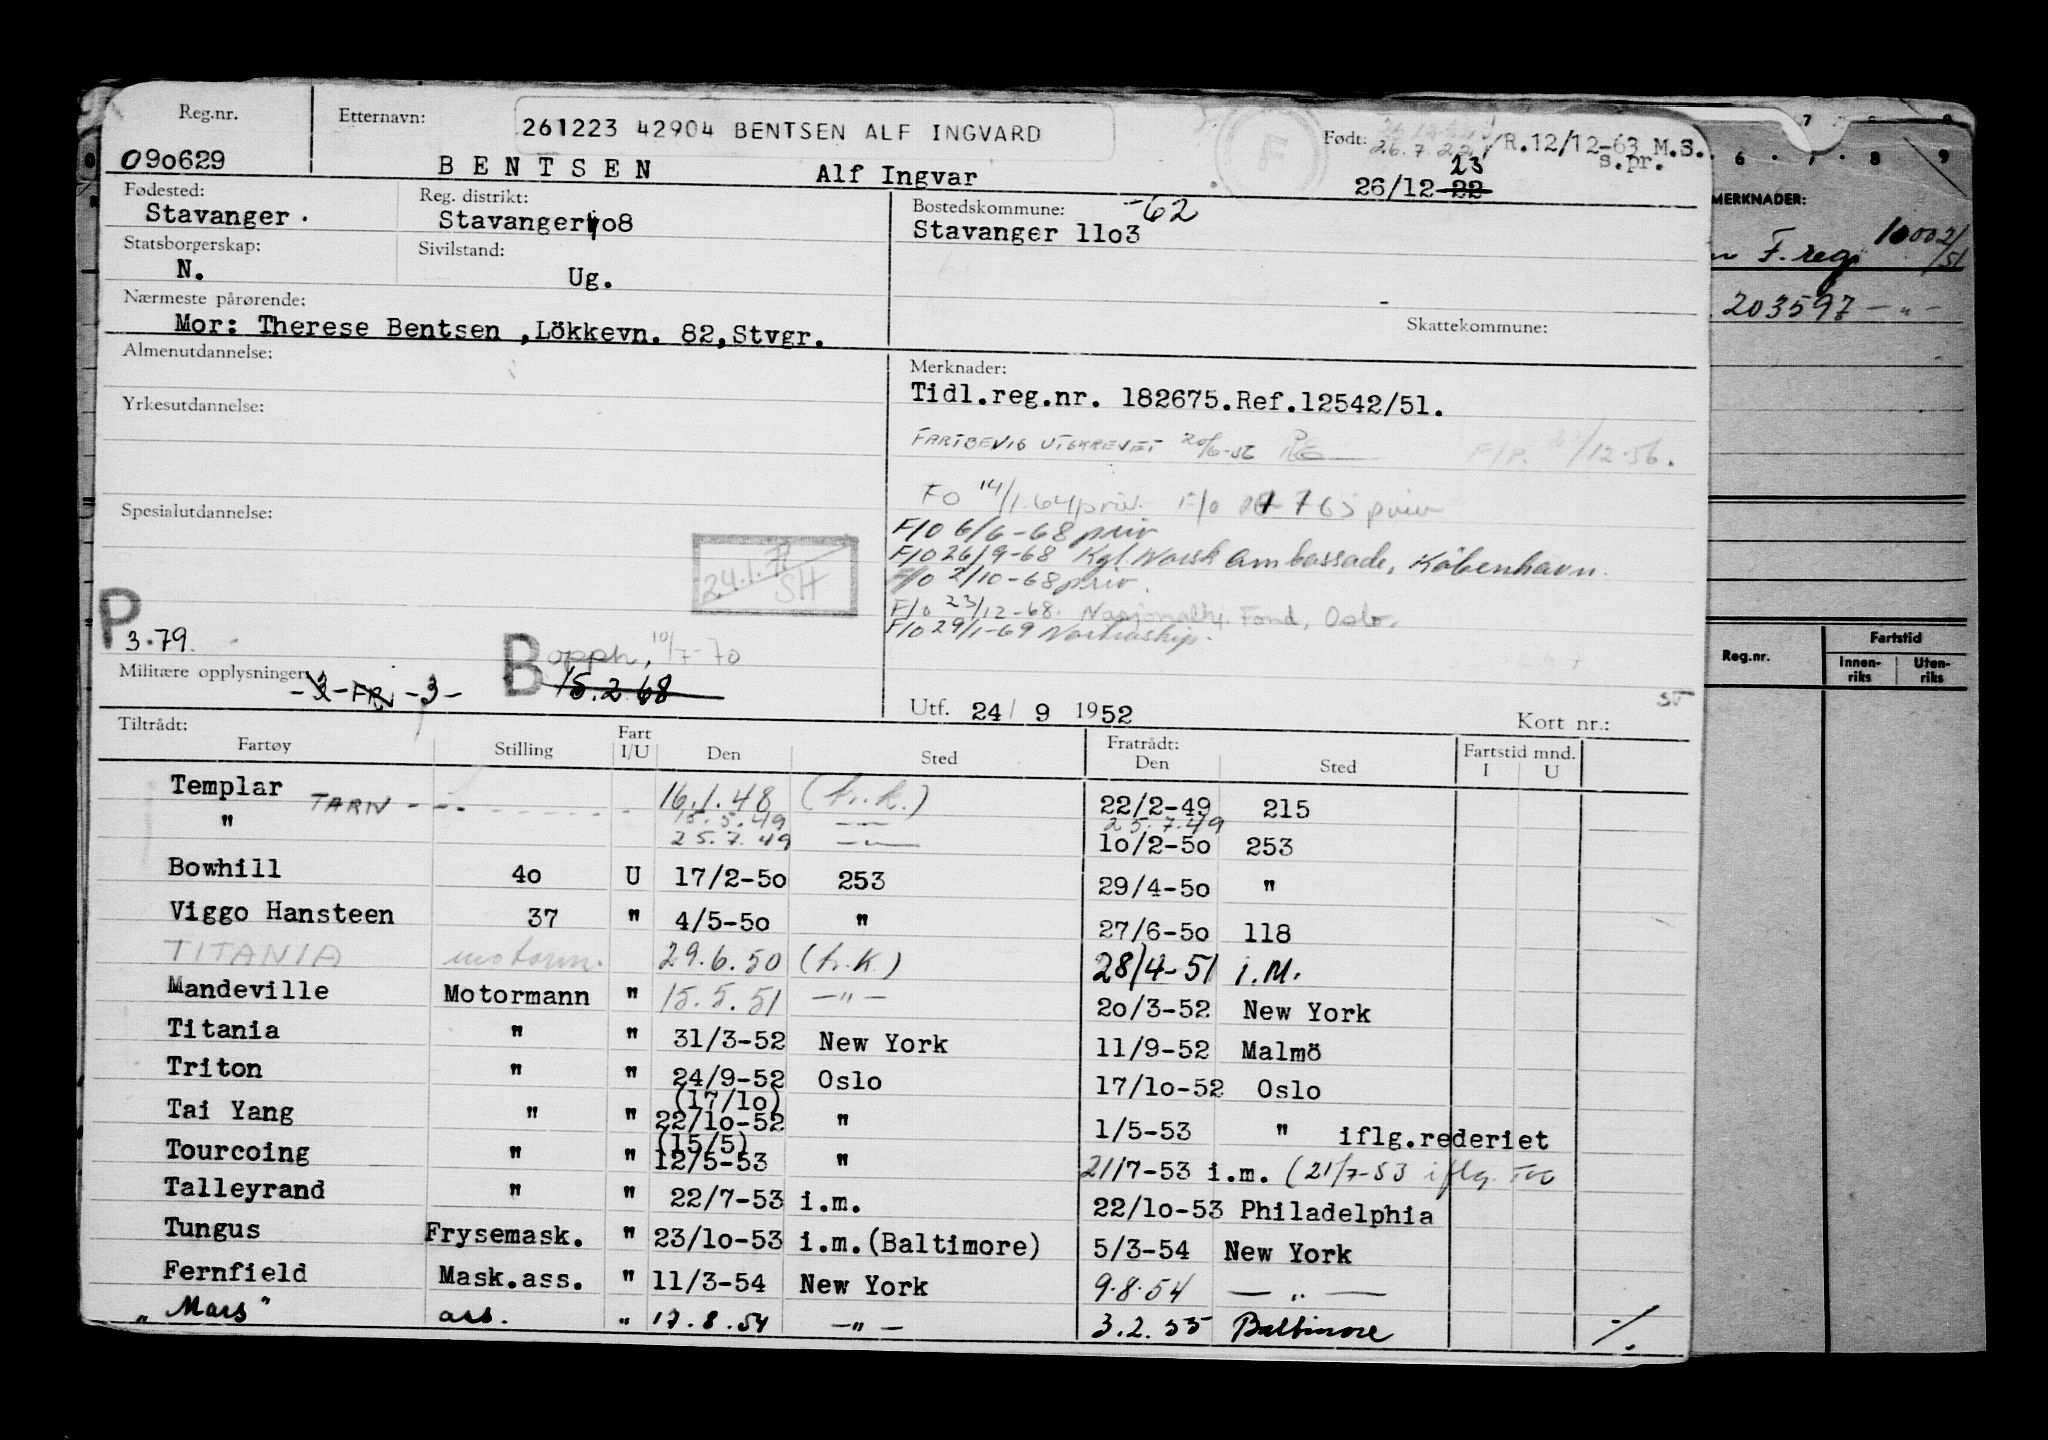 Reg.nr. Etternavn: 261223 42904 BENTSEN ALF INGVARD Født: 26.7.22 /R.12/12-63 M.S.
s.pr.
090629 BENTSEN Alf Ingvar 26/12-22 23
Fødested: Reg. distrikt: Bostedskommune: -62
Stavanger. Stavanger 108 Stavanger 1103
Statsborgerskap: Sivilstand:
N. Ug.
Nærmeste pårørende:
Mor: Therese Bentsen ,Lökkevn. 82,Stvgr. Skattekommune:
Almenutdannelse: Merknader:
Tidl.reg.nr. 182675.Ref.12542/51.
Yrkesutdannelse:
FARTBEVIS UTSKREVET 20/6-56
FO 14/1.64 priv. F/o 7 65 priv
Spesialutdannelse:
F/O 6/6-68 priv
F/O 26/9-68 Kgl. Norsk Ambassade, København.
F/O 2/10-68 priv.
24.1. SH
F/o 23/12-68. Fond, Oslo.
F/O 29/1-69 Nortraship.
P
3.79.
B opph. 10/7-70
15.2.68
Militære opplysninger: -3-FR -3-
Utf. 24/ 9 1952 Kort nr.:
Tiltrådt: Fartøy Stilling Fart I/U Den Sted Fratrådt: Den Sted Fartstid mnd. I U
Templar 16.1.48 (h.k.) 22/2-49 215
TARN - - - 15.5.49 — 25.7.49
" 25.7.49 —"— 10/2-50 253
Bowhill 40 U 17/2-50 253 29/4-50 "
Viggo Hansteen 37 " 4/5-50 " 27/6-50 118
TITANIA motorm. 29.6.50 (h.k.) 28/4-51 i.M.
Mandeville Motormann " 15.5.51 —"— 20/3-52 New York
Titania " " 31/3-52 New York 11/9-52 Malmö
Triton " " 24/9-52 Oslo 17/10-52 Oslo
(17/10)
Tai Yang " " 22/10-52 " 1/5-53 " iflg.rederiet
(15/5)
Tourcoing " " 12/5-53 " 21/7-53 i.m. (21/7-53 iflg.
Talleyrand " " 22/7-53 i.m. 22/10-53 Philadelphia
Tungus Frysemask. " 23/10-53 i.m.(Baltimore) 5/3-54 New York
Fernfield Mask.ass. " 11/3-54 New York 9.8.54 —"—
"Mars" ass. " 17.8.54 —"— 3.2.55 Baltimore ·/.
7 8 9
6 . 7 . 8 9
MERKNADER:
F. reg 10002/51
203597 —"—
Reg.nr. Fartstid
Innen-riks Uten-riks